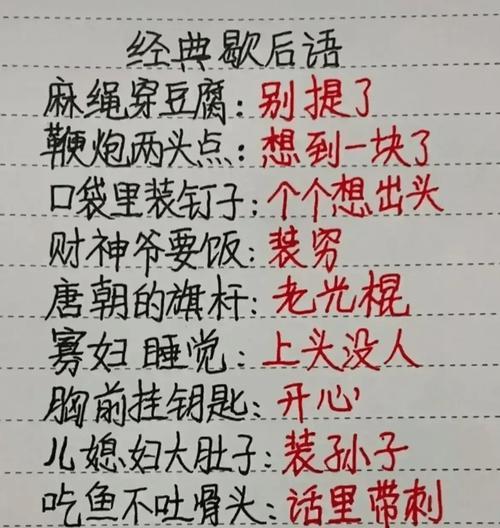 经典歇后语
麻绳穿豆腐：别提了
鞭炮两头点：想到一块了
口袋里装钉子：个个想出头
财神爷要饭：装穷
唐朝的旗杆：老光棍
寡妇睡觉：上头没人
胸前挂钥匙：开心
儿媳妇大肚子：装孙子
吃鱼不吐骨头：话里带刺